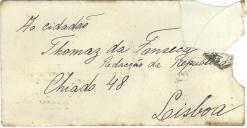 Ao cidadão
Thomaz da Fonseca
Redacção da Republica
Chiado 48
Lisboa